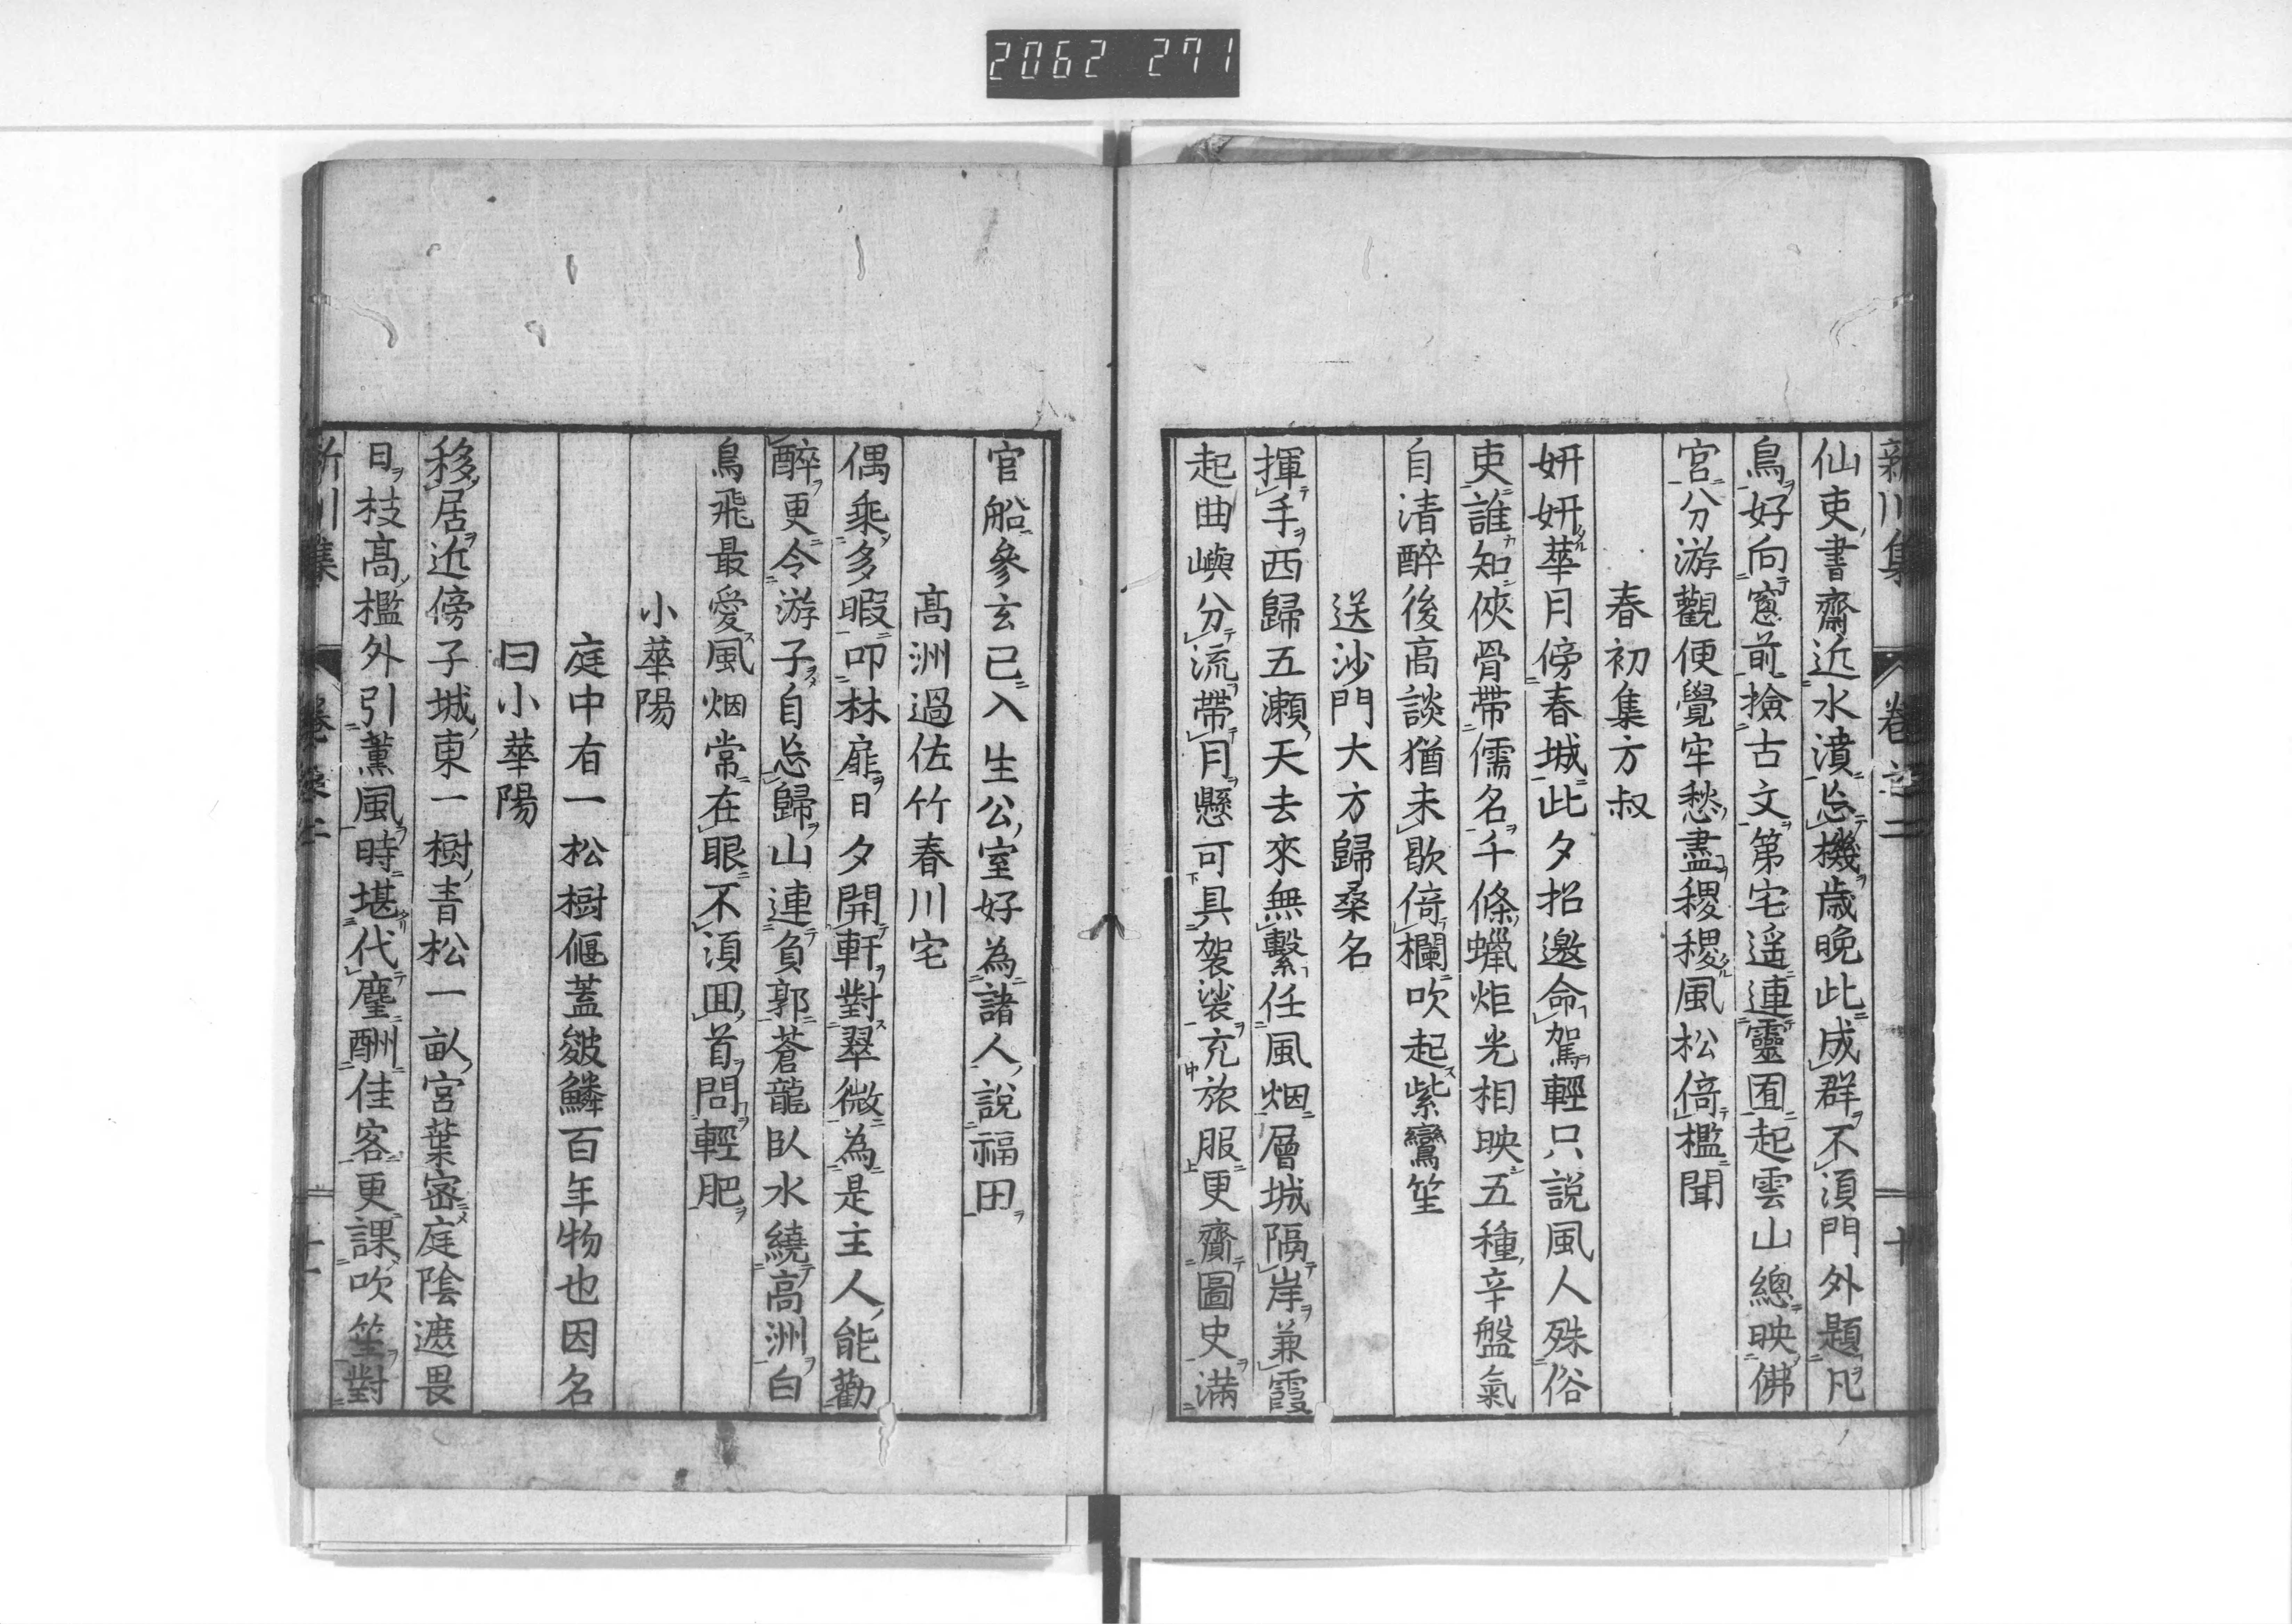 2062 271
新川集 卷之二 十
仙吏書齋近水濆忘機歲晚此成群不須門外題凡
鳥好向窻前撿古文第宅遥連靈囿起雲山總映佛
宮分游觀便覺牢愁盡稷稷風松倚檻聞
春初集方叔
妍妍華月傍春城此夕招邀命駕輕只説風人殊俗
吏誰知俠骨帶儒名千條蠟炬光相映五種辛盤氣
自清醉後高談猶未歇倚欄吹起紫鸞笙
送沙門大方歸桑名
揮手西歸五瀬天去來無繫任風烟層城隔岸兼霞
起曲嶼分流帶月懸可具袈裟充旅服更齎圖史滿
官船參玄已入生公室好為諸人說福田
高洲過佐竹春川宅
偶乘多暇叩林扉日夕開軒對翠微為是主人能勸
醉更令游子自忘歸山連負郭蒼龍臥水繞高洲白
鳥飛最愛風烟常在眼不須囬首問輕肥
小華陽
庭中有一松樹偃蓋皴鱗百年物也因名
曰小華陽
移居近傍子城東一樹青松一畝宮葉密庭陰遮畏
日枝高檻外引薫風時堪代麈酬佳客更課吹笙對
新川集 十一